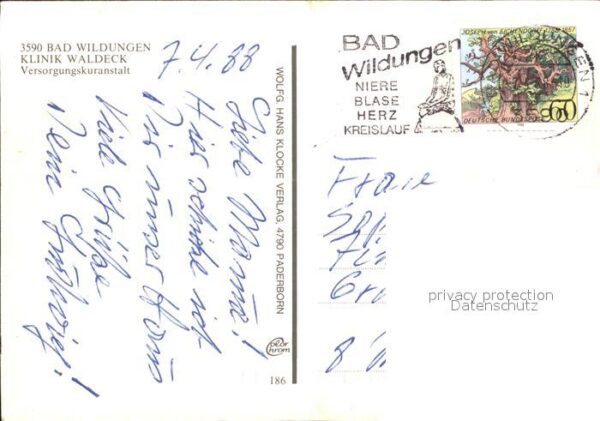 3590 BAD WILDUNGEN
KLINIK WALDECK
Versorgungskuranstalt
7.4.88
Liebe Mama!
Hier schicke ich
Dir unser Haus
Viele Grüße
Deine
WOLFG. HANS KLOCKE VERLAG, 4790 PADERBORN
186
BAD
Wildungen
NIERE
BLASE
HERZ
KREISLAUF
JOSEPH von EICHENDORFF
1857
DEUTSCHE BUNDESPOST
60
Frau
privacy protection
Datenschutz